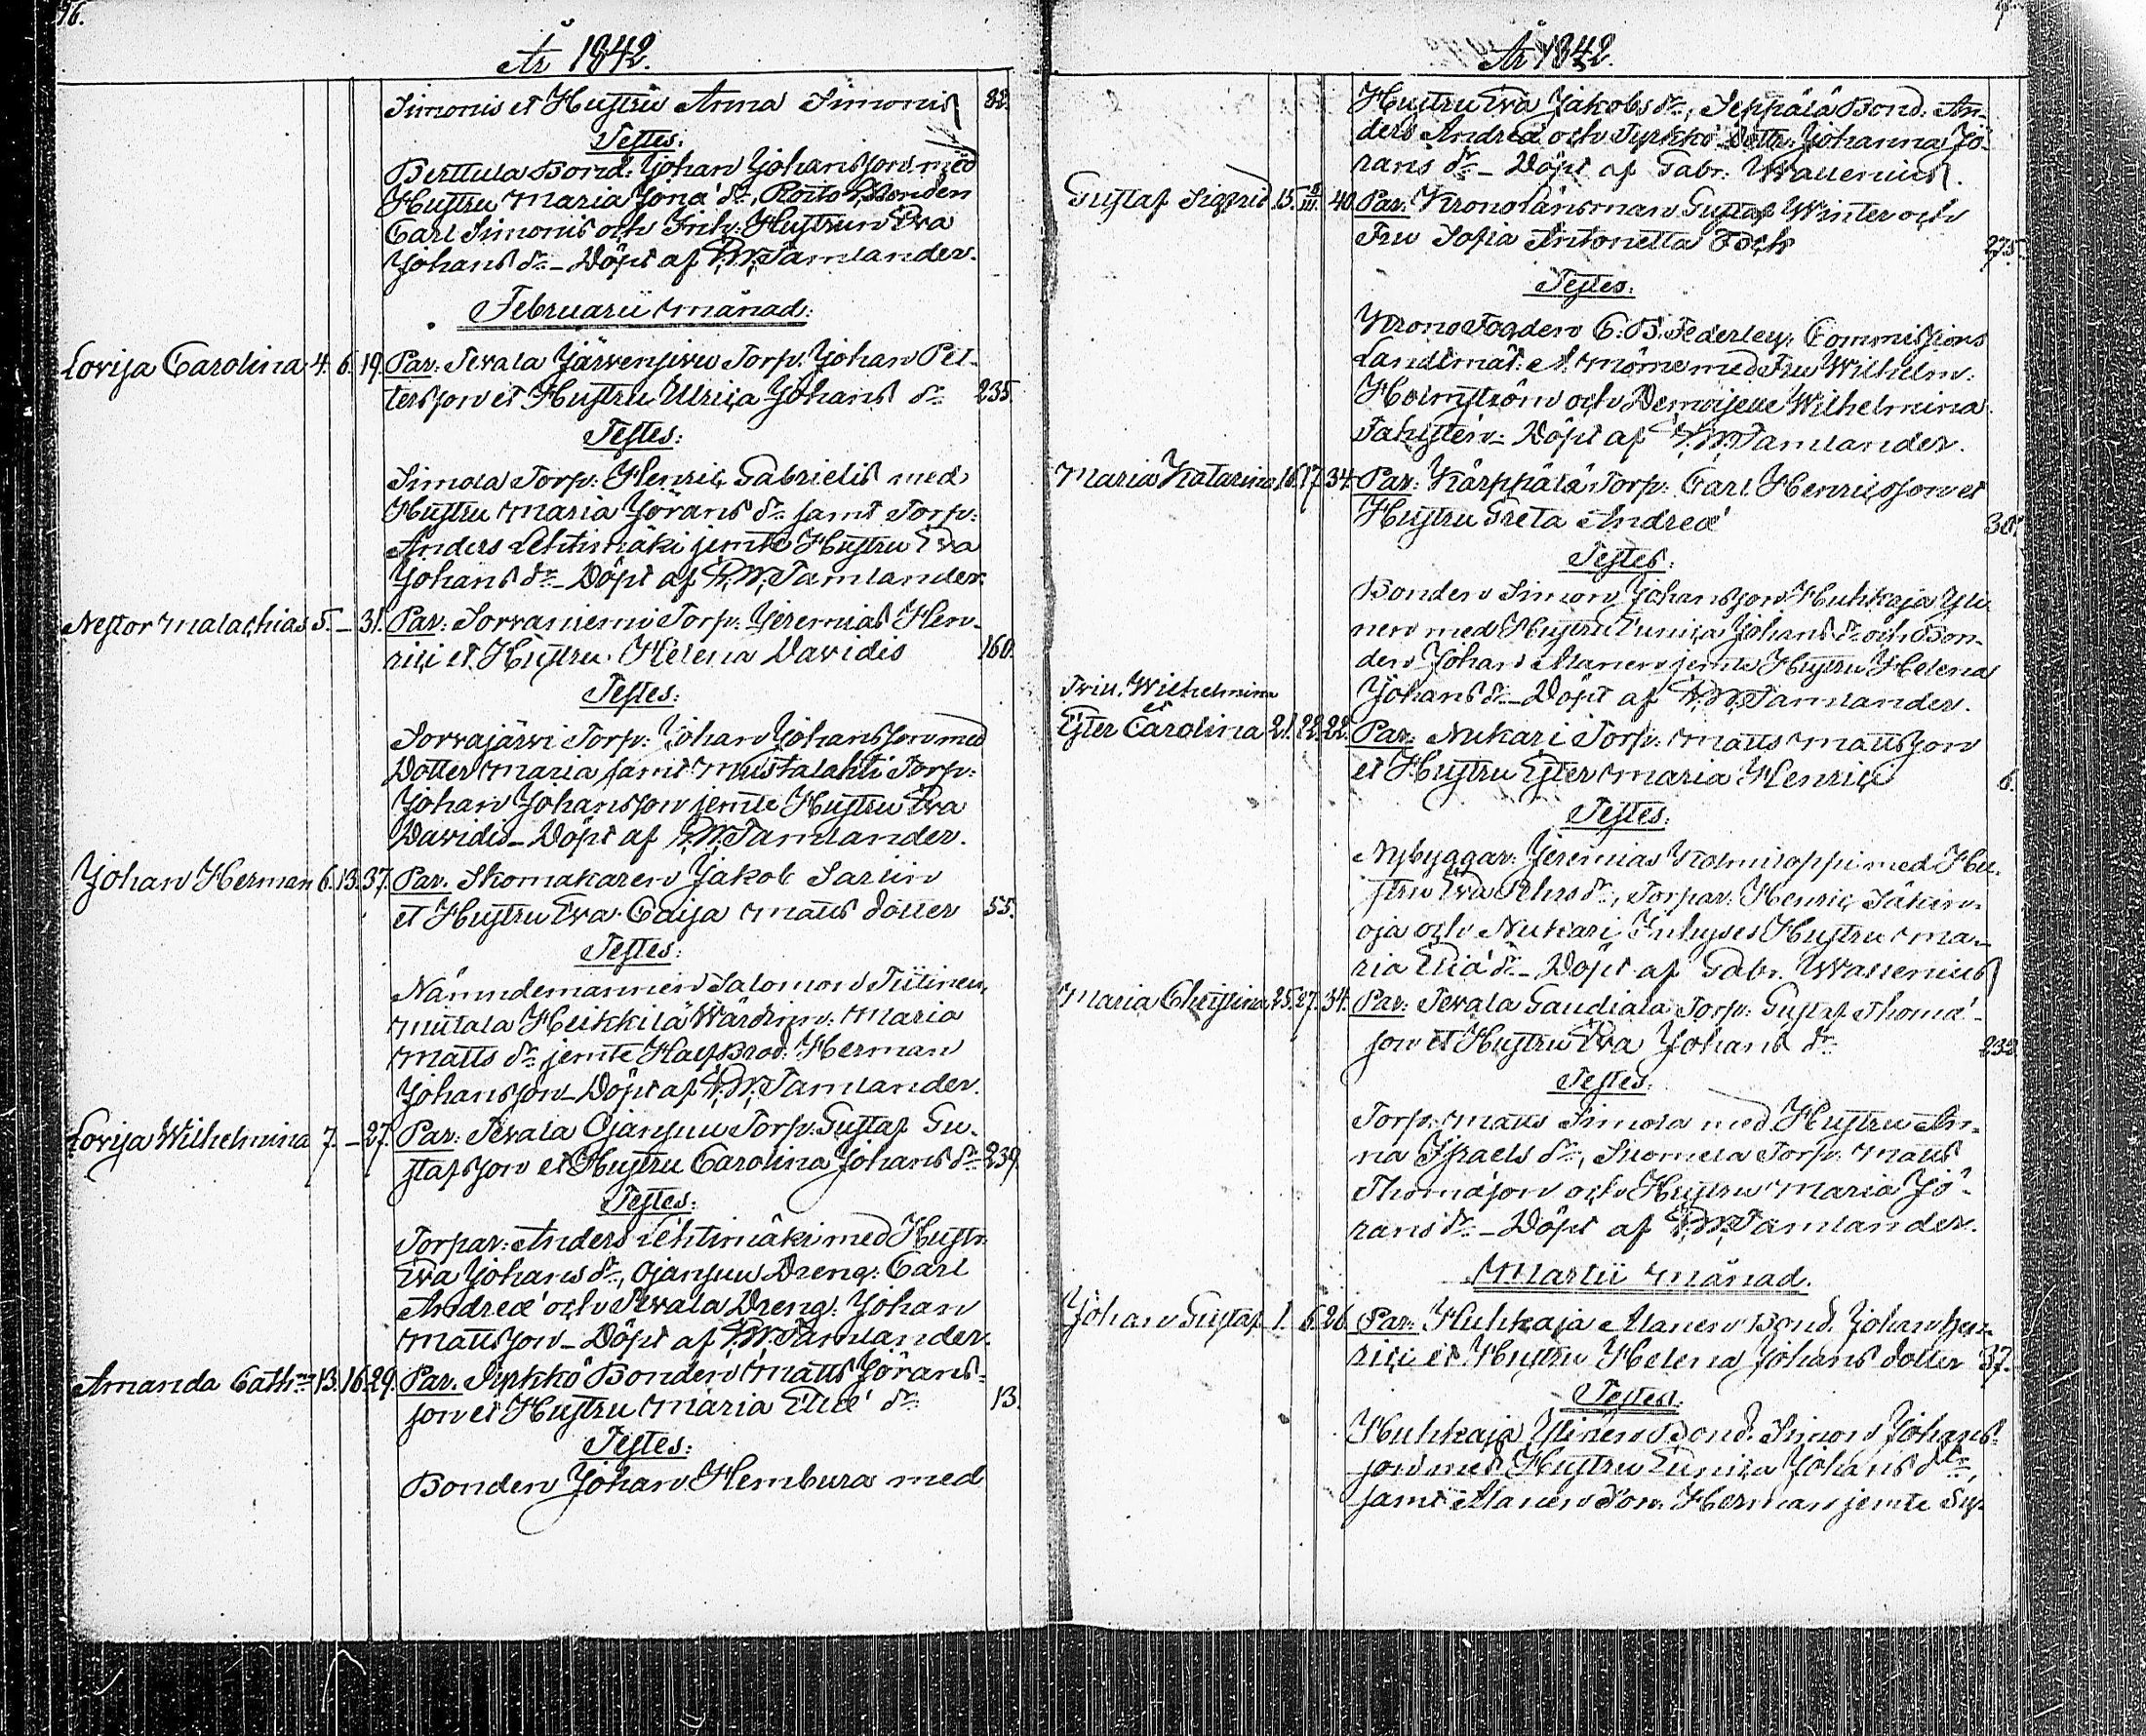 76.
År 1842.
Simonis et Hustru Anna Simonis 82.
Testes:
Berttula Bond: Johan Johansson med
Hustru Maria Jonæ dr, Roito Bonden
Carl Simonis och Inh: Hustrun Eva
Johans dr – Döpt af P.W. Tamlander.
Februarii Månad:
Lovisa Carolina 4. 6. 19. Par: Sevala Järvensivu Torp: Johan Pet-
tersson et Hustru Ulrica Johans dr 235.
Testes:
Simola Torp: Henric Gabrielis med
Hustru Maria Jörans dr samt Torp:
Anders Lehtimäki jemte Hustru Eva
Johans dr – Döpt af P.W. Tamlander.
Nestor Malachias 5. – 31. Par: Sorvaniemi Torp: Jeremias Hen-
rici et Hustru Helena Davidis 160.
Testes:
Sorvajärvi Torp: Johan Johansson med
Dotter Maria samt Mustalahti Torp:
Johan Johansson jemte Hustru Eva
Davidis – Döpt af P.W. Tamlander.
Johan Herman 6. 13. 37. Par. Skomakaren Jakob Sarlin
et Hustru Eva Caisa Matts dotter 55.
Testes:
Nämndemannen Salomon Tiitinen,
Mutala Heikkilä Wärdinn: Maria
Matts dr jemte Half Brod: Herman
Johansson – Döpt af P.W. Tamlander.
Lovisa Wilhelmina 7. – 27. Par: Sevala Ojansuu Torp: Gustaf Gu-
stafsson et Hustru Carolina Johans dr 239.
Testes:
Torpar: Anders Lehtimäki med Hustr:
Eva Johans dr, Ojansuu Dreng: Carl
Andreæ och Sevala Dreng: Johan
Mattsson – Döpt af P.W. Tamlander.
Amanda Cathna 13. 16. 29. Par. Jyrkkö Bonden Matts Jörans-
son et Hustru Maria Eliæ dr 13.
Testes:
Bonden Johan Hembura med
År 1842.
Hustru Eva Jakobs dr, Seppälä Bond: An-
ders Andreæ och Jyrkkö Dottr: Johanna Jö-
rans dr – Döpt af Gabr: Wallenius.
Gustaf Sigfrid 15. 2/III. 40. Par: Kronolänsman Gustaf Winter och
Fru Sofia Antonetta Fock 275.
Testes:
KronoFogden C: B. Federley, Commissions
Landtmät: A. Möme med Fru Wilhelm:
Holmström och Demoiselle Wilhelmina
Fahlstén – Döpt af P.W. Tamlander.
Maria Katarina 16. 17. 34. Par: Kärppälä Torp: Carl Henricsson et
Hustru Greta Andreæ 30.
Testes:
Bonden Simon Johansson Huhkaja Yli-
nen med Hustru Eunica Johans dr och Bon-
den Johan Alanen jemte Hustru Helena
Johans dr – Döpt af P.W. Tamlander.
Trill. Wilhelmina
et
Ester Carolina 21. 22. 22. Par: Nukari Torp: Matts Mattsson
et Hustru Ester Maria Henrici 6.
Testes:
Nybyggar: Jeremias Kolmiloppi med Hu-
stru Eva Pehrs dr, Torpar: Henric Säkin-
oja och Nukari Inhyses Hustru Ma-
ria Eliæ dr – Döpt af Gabr. Wallenius
Maria Christina 25. 27. 34. Par: Sevala Gaudiala Torp: Gustaf Thomæ-
son et Hustru Eva Johans dr 232.
Testes:
Torp: Matts Simola med Hustru An-
na Israels dr, Suomela Torp: Matts
Thomæson och Hustru Maria Jö-
rans dr – Döpt af P.W. Tamlander.
Martii Månad.
Johan Gustaf 1. 6. 26. Par: Huhkaja Alanen Bond. Johan Hen-
rici et Hustru Helena Johans dotter 37.
Testes:
Huhkaja Ylinen Bond. Simon Johans-
son med Hustru Eunica Johans dtr,
samt Alanen Son: Herman jemte Sy-